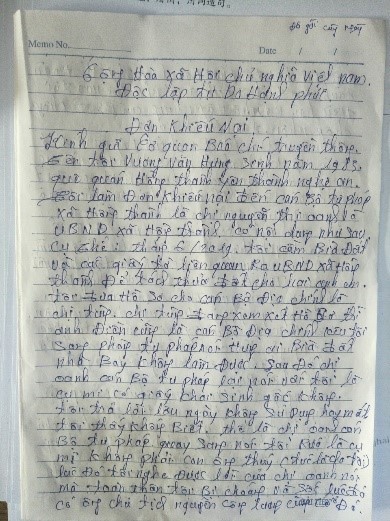 Đã gửi
Memo No.
Date / /
Cộng Hòa xã Hội chủ nghĩa Việt nam.
Độc lập tự Do Hạnh phúc
Đơn Khiếu Nại
Kính gửi: Cơ quan Báo chí truyền thông.
tên tôi Vương Văn Hưng sinh năm 1985.
quê quán Hồng thành yên thành nghệ an.
tôi làm Đơn Khiếu nại Đến cán Bộ tư pháp
xã Hồng thành là chị nguyễn thị oanh
UBND xã Hồng thành, có nội dung như sau
cụ thể: tháng 6/2019. tôi cầm Bìa Đất
và các giấy tờ liên quan Ra UBND xã Hồng
thành Để tách thửa Đất cho hai anh em.
tôi đưa Hồ sơ cho cán Bộ Địa chính là
chị túng. chị túng xem xét Hồ sơ thì
anh Điền cũng là cán Bộ Địa chính
sang phòng tư pháp vì Bìa Đất
nhà Bay không làm Được. sau Đó chị
oanh cán Bộ tư pháp lại nói với tôi là
cụ mi có giấy khai sinh gốc không.
tôi trả lời lâu ngày không sử Dụng hay mất
tôi thấy không Biết. thế là chị oanh cán
Bộ tư pháp quay sang nói tôi là cụ
mi không phải con ông thuý
lúc Đó tôi nghe Được lời của chị oanh nói
mà toàn thân tôi Bị choáng và sốc lúc đó
có ông chủ tịch nguyễn công lương cũng Đó.